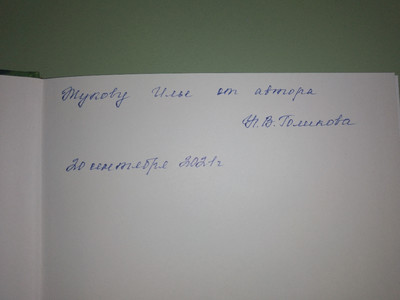 Жукову Илье от автора
Н.В. Голикова
20 сентября 2021г